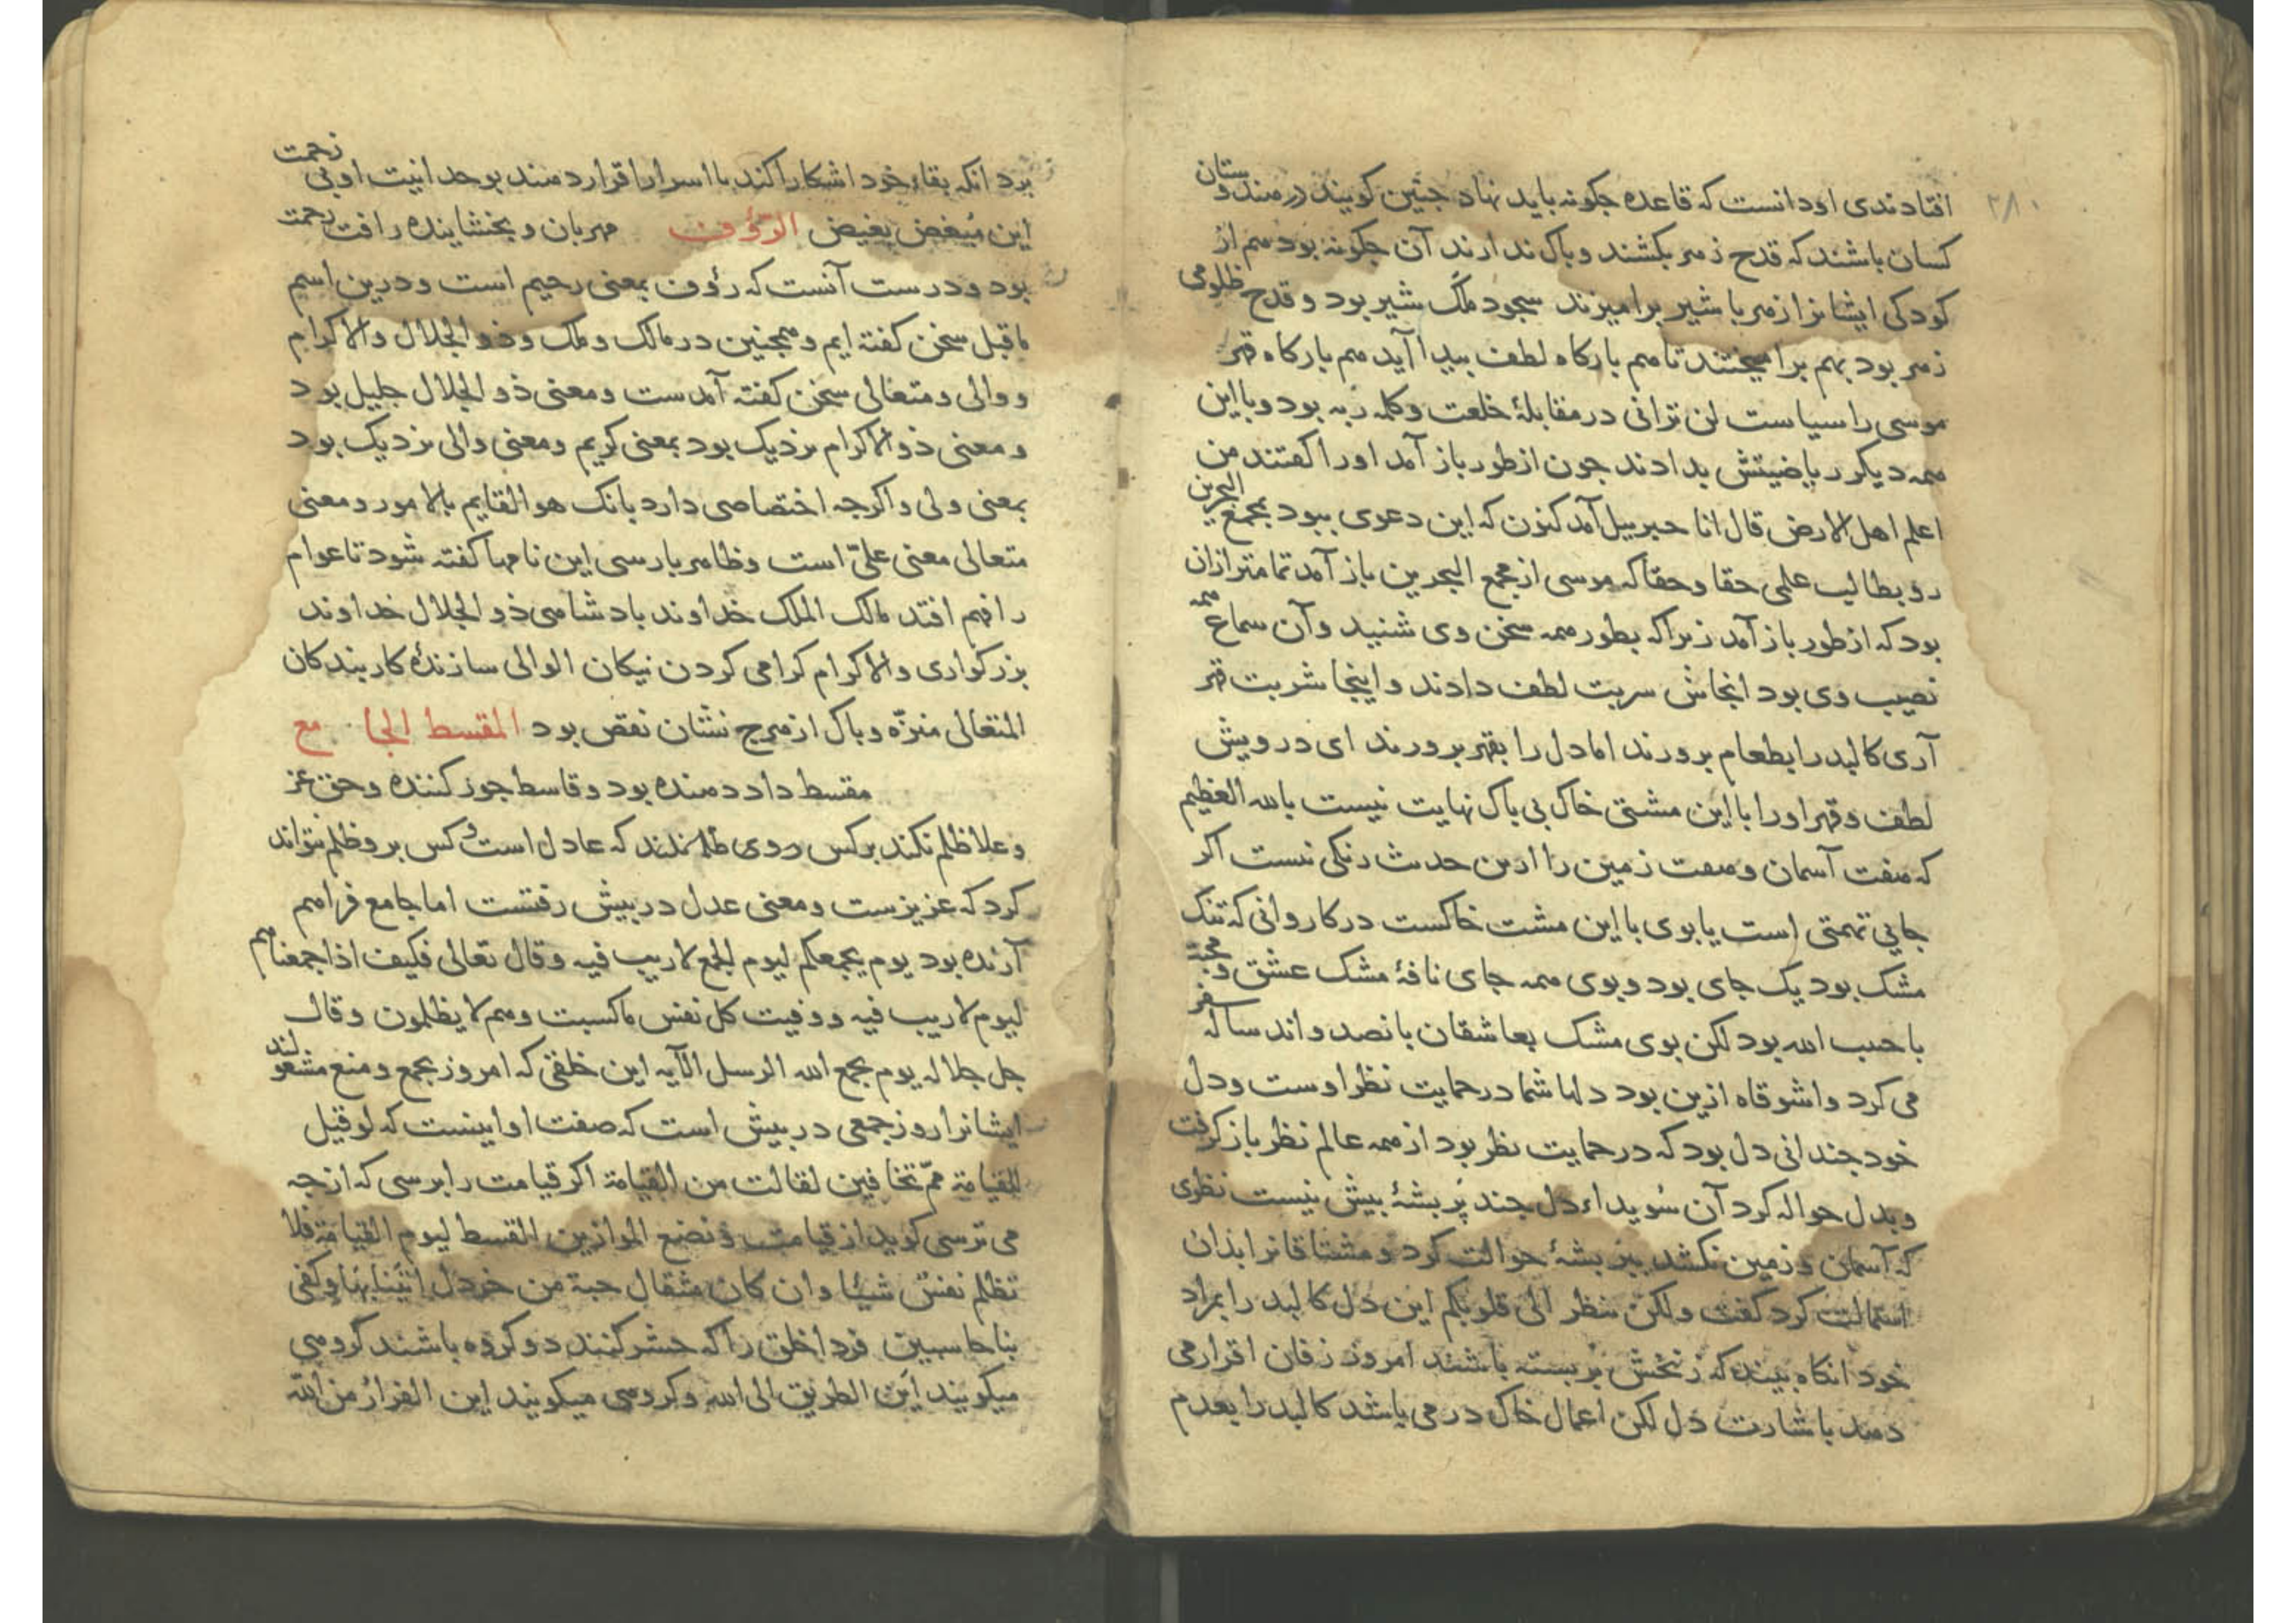 ۲۸۰
افتادندی او دانست که قاعده جکونه باید نهاد جنین کویند در هندوستان
کسان باشند که قدح زهر بکشند و باک ندارند آن جکونه بود هم از
کودکی ایشانرا زهر با شیر برامیزند سجود ملک شیر بود و قدح ظلومی
زهر بود بهم برامیختند تا هم بارکاه لطف بیدا آید هم بارکاه قهر
موسی را سیاست لن ترانی در مقابلۀ خلعت وکلمه ربه بود و با این
همه دیکر ریاضیتش بدادند جون از طور باز آمد اورا کفتند من
اعلم اهل الارض قال انا جبرییل آمد کنون که این دعوی ببود بمجمع البحرین
رو بطالب علمی حقا و حقا که موسی از مجمع البحرین باز آمد تمامتر ازان
بود که از طور باز آمد زیرا که بطور همه سخن وی شنید و آن سماع همه
نصیب وی بود انجاش شربت لطف دادند و اینجا شربت قهر
آری کالبد را بطعام برورند اما دل را بقهر برورند ای درویش
لطف و قهر اورا با این مشتی خاک بی باک نهایت نیست بالله العظیم
که هفت آسمان و هفت زمین را ازین حدیث رنکی نیست اکر
جایی تهمتی است یا بوی با این مشت خاکست در کاروانی که تنک
مشک بود یک جای بود و بوی همه جای نافۀ مشک عشق و محبة
با حبیب الله بود لکن بوی مشک بعاشقان بانصد و اند ساله سفر
می کرد واشوقاه ازین بود دلهاشما در حمایت نظر اوست و دل
خود جندانی دل بود که در حمایت نظر بود از همه عالم نظر باز کرفت
و بدل حواله کرد آن سُویداء دل جند پر بشۀ بیش نیست نظری
که آسمان و زمین نکشد ببر بشۀ حوالت کرد و مشتاقانرا بذان
استمالت کرد کفت ولکن ینظر الی قلوبکم این دل کالبد را بمراد
خود انکاه بیند که زنخش بر بسته باشند امروز زفان اقرار می
دهد باشارت دل لکن اعمال خاک در می باشد کالبد را بعدم
برد انکه بقاء خود اشکارا کند با اسرار اقرار دهند بوحدانیت او بی زحمت
این مُبغض بغیض الرؤف مهربان و بخشاینده رافت رحمت
بود و درست آنست که رؤف بمعنی رحیم است و درین اسم
ماقبل سخن کفته ایم و همجنین در مالک و ملک و ذو الجلال والاکرام
و والی و متعالی سخن کفته آمدست و معنی ذو الجلال جلیل بود
و معنی ذو الاکرام نزدیک بود بمعنی کریم و معنی والی نزدیک بود
بمعنی ولی و اکرجه اختصاصی دارد بانک هو القایم بالامور و معنی
متعالی معنی علیّ است و ظاهر بارسی این نامها کفته شود تا عوام
را فهم افتد مالک الملک خداوند بادشاهی ذو الجلال خداوند
بزرکواری والاکرام کرامی کردن نیکان الوالی سازندۀ کار بندکان
المتعالی منزّه و باک از هرج نشان نقص بود المقسط الجامع
مقسط داد دهنده بود و قاسط جور کننده و حق عز
و علا ظلم نکند بر کس که عادل است و کس برو ظلم نتواند
کرد که عزیزست و معنی عدل در بیش رفتست اما جامع فراهم
آرنده بود یوم یجمعکم لیوم الجمع لاریب فیه وقال تعالی فکیف اذا جمعناهم
لیوم لاریب فیه ووفیت کل نفس ماکسبت وهم لا یظلمون وقال
جل جلاله یوم یجمع الله الرسل الآیه این خلقی که امروز بجمع و منع مشغولند
ایشانرا روز جمعی در بیش است که صفت او اینست که لو قیل
للقیامة ممّ تخافین لقالت من القیامة اکر قیامت را برسی که از جه
می ترسی کوید از قیامت و نضع الموازین القسط لیوم القیامة فلا
تظلم نفسٌ شیئا وان کان مثقال حبة من خردل اتینا بها وکفی
بنا حاسبین فردا خلق را که حشر کنند دو کروه باشند کروهی
میکویند این الطریق الی الله و کروهی میکویند این الفرار من الله